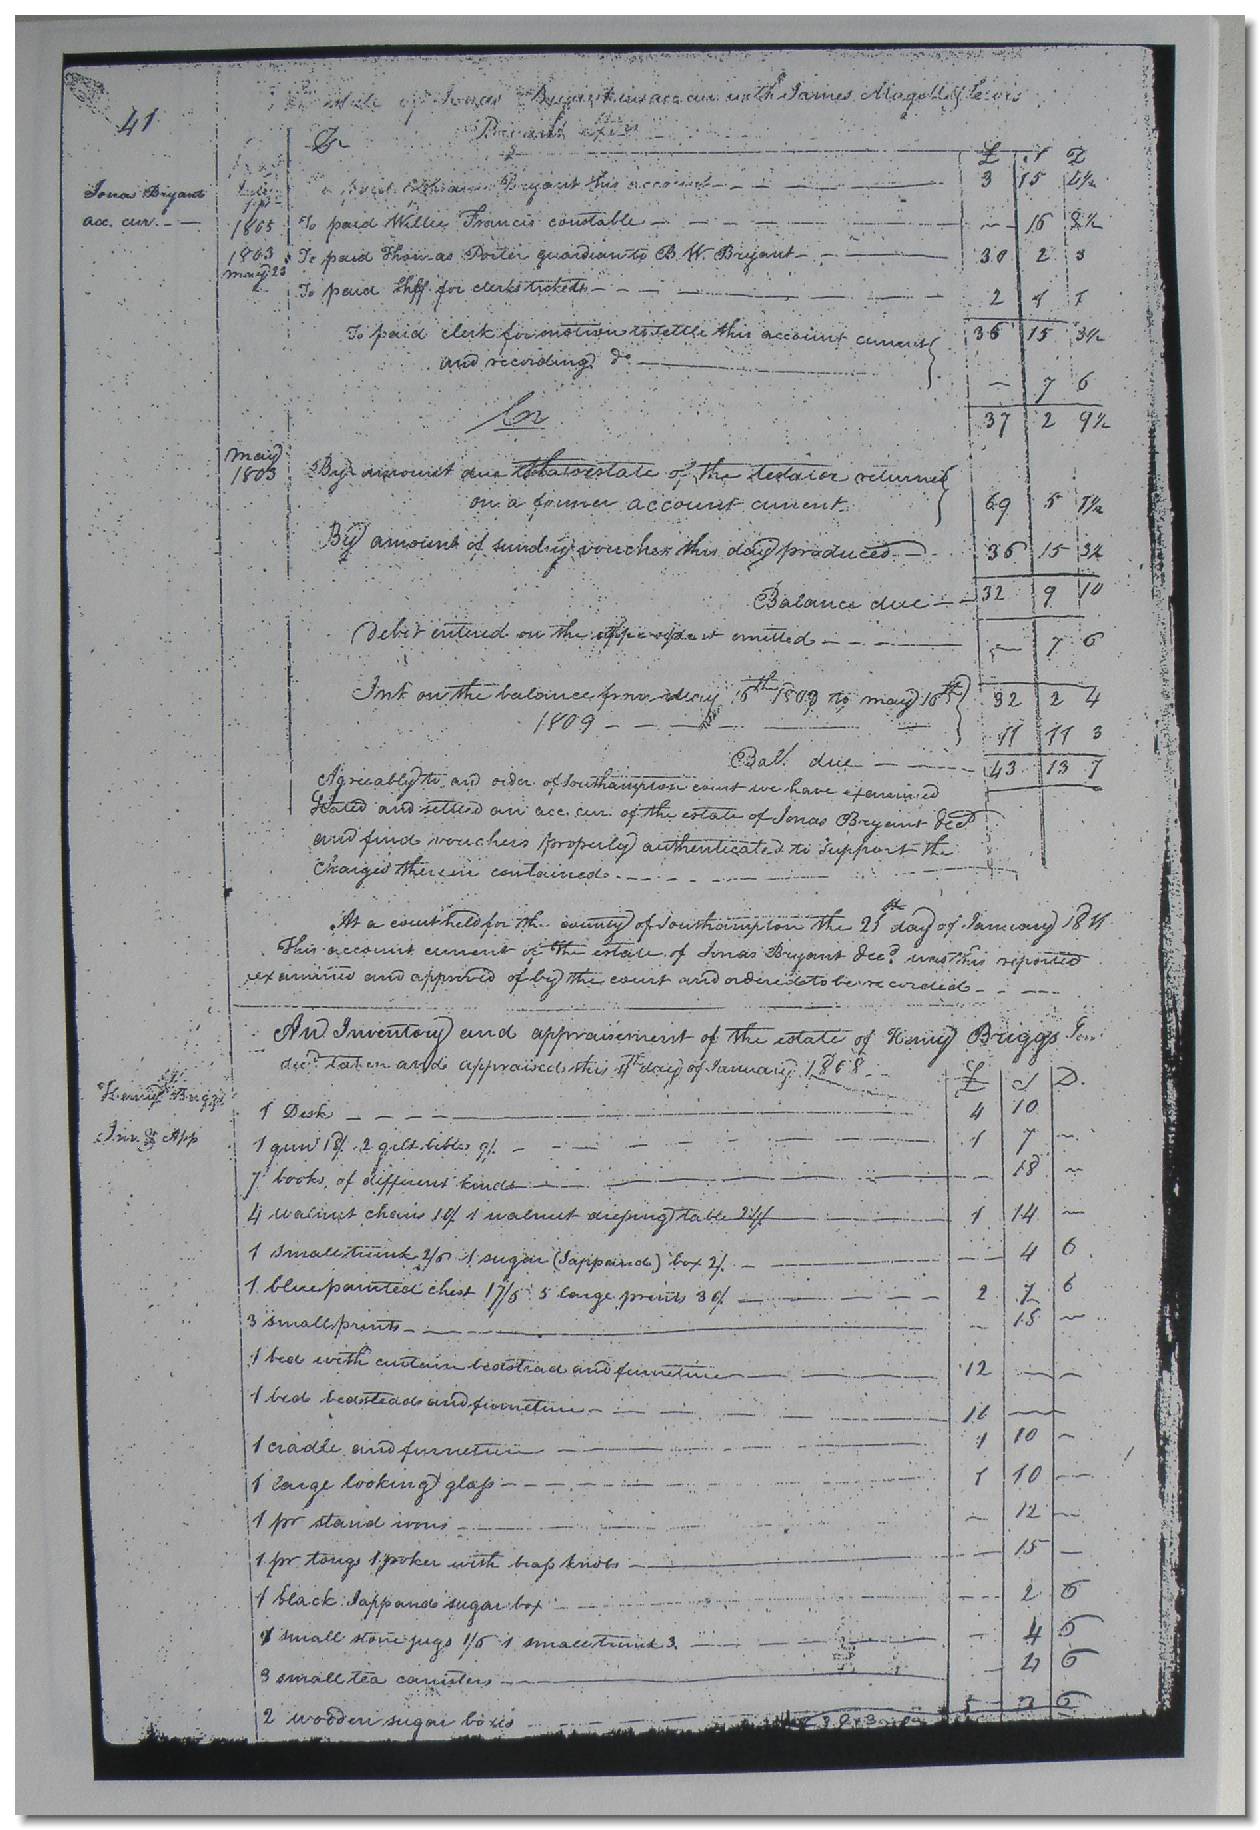 41
estate of Jonas Bryant in acc cur with James Magett & Lewis
Bryant
Dr
£ S D
Jonas Bryant
acc. cur.
paid Bryant his account 3 15 4½
1805 To paid Willie Francis constable 16 2½
1803 May 23 To paid Thomas Porter guardian to B. W. Bryant 30 2 3
To paid Shff for clerks tickets 2 1
36 15 3½
To paid clerk for motion to settle this account current
and recording &c 7 6
Cr 37 2 9½
May 1803 By amount due the estate of the testator returned
on a former account current 69 5 1½
By amount of sundry vouchers this day produced 36 15 3½
Balance due 32 9 10
Debit entered on the omitted 7 6
Int on the balance from May 16th to May 16th 32 2 4
1809 11 11 3
Bal. due 43 13 7
Agreeably to an order of Southampton court we have examined
stated and settled an acc. cur. of the estate of Jonas Bryant decd
and find vouchers properly authenticated to support the
charges therein contained
At a court held for the county of Southampton the 21st day of January 1811
This account current of the estate of Jonas Bryant decd was this reported
examined and approved of by the court and ordered to be recorded
An Inventory and appraisement of the estate of Henry Briggs Sen
decd taken and appraised this day of January 1808
£ S D
Henry Briggs
Inv. & App
1 Desk 4 10
1 gun 18/. 2 gilt bibles 9/. 1 7 ~
7 books of different kinds 18 ~
4 walnut chairs 10/ 1 walnut dressing table 24/ 1 14 ~
1 small trunk 2/6 1 sugar (Jappand) box 2/. 4 6
1 blue painted chest 17/6 5 large prints 30/. 2 7 6
3 small prints 15 ~
1 bed with curtain bedstead and furneture 12
1 bed bedstead and furneture 11
1 cradle and furneture 1 10 ~
1 large looking glass 1 10
1 pr stand irons 12
1 pr tongs 1 poker with brass knobs 15
1 black Jappand sugar box 2 6
small stone jugs 1/6 1 small trunk 3. 4 6
3 small tea canisters 4 6
2 wooden sugar boxes 6